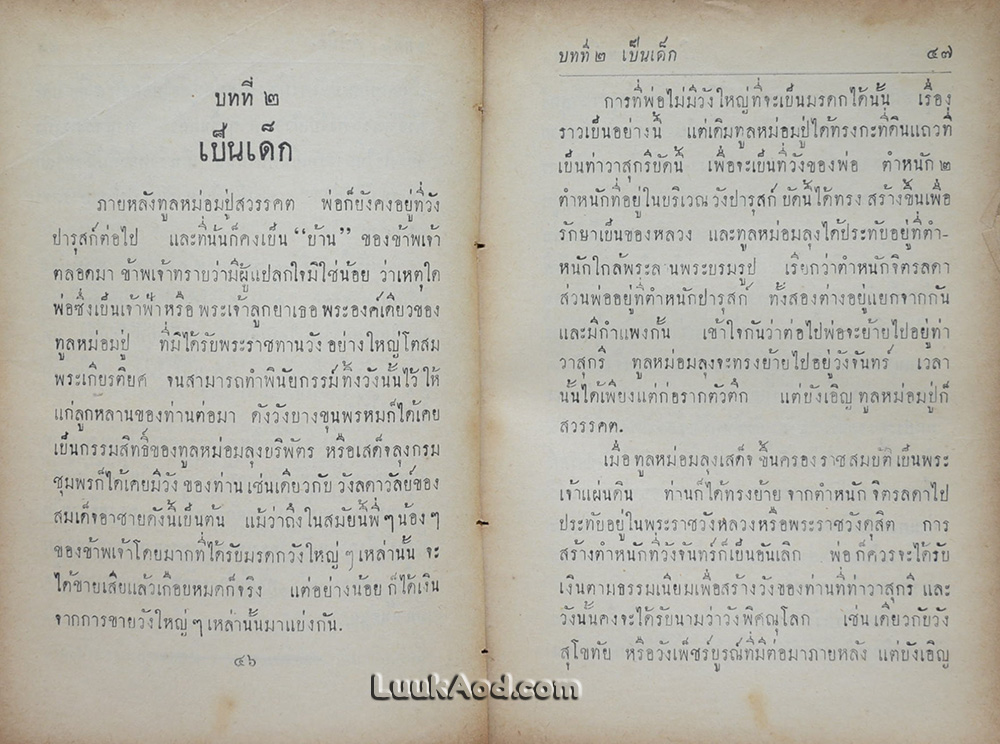 บทที่ ๒
เป็นเด็ก
ภายหลังทูลหม่อมปู่สวรรคต พ่อก็ยังคงอยู่ที่วัง
ปารุสก์ต่อไป และที่นั่นก็คงเป็น “บ้าน” ของข้าพเจ้า
ตลอดมา ข้าพเจ้าทราบว่ามีผู้แปลกใจมิใช่น้อย ว่าเหตุใด
พ่อซึ่งเป็นเจ้าฟ้า หรือ พระเจ้าลูกยาเธอ พระองค์เดียวของ
ทูลหม่อมปู่ ที่มิได้รับพระราชทานวัง อย่างใหญ่โตสม
พระเกียรติยศ จนสามารถทำพินัยกรรม์ ทิ้งวังนั้นไว้ ให้
แก่ลูกหลานของท่านต่อมา ดังวังบางขุนพรหมก็ได้เคย
เป็นกรรมสิทธิ์ของทูลหม่อมลุงบริพัตร หรือเสด็จลุงกรม
ชุมพรก็ได้เคยมีวัง ของท่าน เช่นเดียวกับ วังลดาวัลย์ของ
สมเด็จอาชายดังนี้เป็นต้น แม้ว่าถึงในสมัยนี้พี่ๆ น้องๆ
ของข้าพเจ้าโดยมากที่ได้รับมรดกวังใหญ่ๆ เหล่านั้น จะ
ได้ขายเสียแล้วเกือบหมดก็จริง แต่อย่างน้อย ก็ได้เงิน
จากการขายวังใหญ่ๆ เหล่านั้นมาแบ่งกัน.
๔๖
บทที่ ๒ เป็นเด็ก ๔๗
การที่พ่อไม่มีวังใหญ่ที่จะเป็นมรดกได้นั้น เรื่อง
ราวเป็นอย่างนี้ แต่เดิมทูลหม่อมปู่ได้ทรงกะที่ดินแถวที่
เป็นท่าวาสุกรีบัดนี้ เพื่อจะเป็นที่วังของพ่อ ตำหนัก ๒
ตำหนักที่อยู่ในบริเวณ วังปารุสก์ บัดนี้ได้ทรง สร้างขึ้นเพื่อ
รักษาเป็นของหลวง และทูลหม่อมลุงได้ประทับอยู่ที่ตำ-
หนักใกล้พระลานพระบรมรูป เรียกว่าตำหนักจิตรลดา
ส่วนพ่ออยู่ที่ตำหนักปารุสก์ ทั้งสองต่างอยู่แยกจากกัน
และมีกำแพงกั้น เข้าใจกันว่าต่อไปพ่อจะย้ายไปอยู่ท่า
วาสุกรี ทูลหม่อมลุงจะทรงย้ายไปอยู่วังจันทร์ เวลา
นั้นได้เพียงแต่ก่อรากตัวตึก แต่บังเอิญ ทูลหม่อมปู่ก็
สวรรคต.
เมื่อ ทูลหม่อมลุงเสด็จ ขึ้นครอง ราชสมบัติ เป็นพระ
เจ้าแผ่นดิน ท่านก็ได้ทรงย้าย จากตำหนัก จิตรลดาไป
ประทับอยู่ในพระราชวังหลวงหรือพระราชวังดุสิต การ
สร้างตำหนักที่วังจันทร์ก็เป็นอันเลิก พ่อ ก็ควรจะได้รับ
เงินตามธรรมเนียมเพื่อสร้างวังของท่านที่ท่าวาสุกรี และ
วังนั้นคงจะได้รับนามว่าวังพิศณุโลก เช่นเดียวกับวัง
สุโขทัย หรือวังเพ็ชร์บูรณ์ที่มีต่อมาภายหลัง แต่บังเอิญ
LuukAod.com